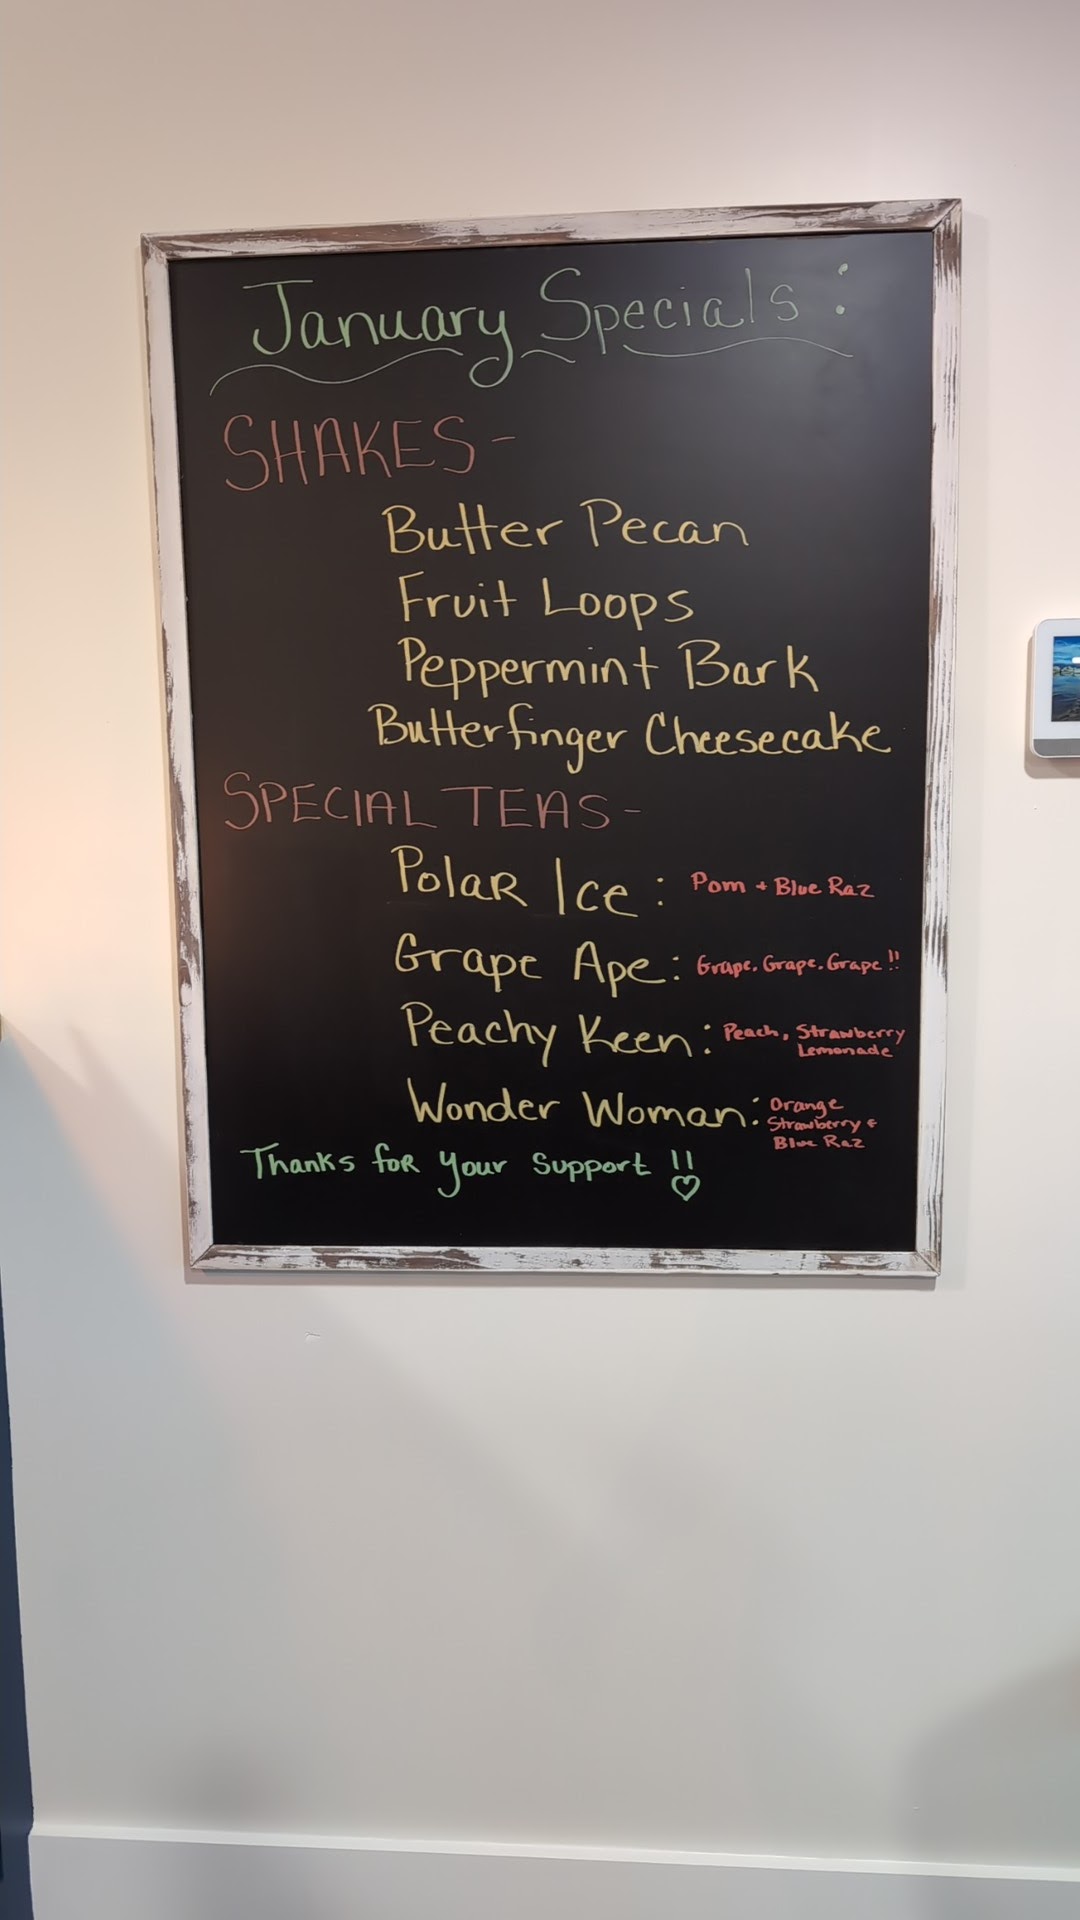 January Specials:
SHAKES-
Butter Pecan
Fruit Loops
Peppermint Bark
Butterfinger Cheesecake
SPECIAL TEAS-
Polar Ice: Pom + Blue Raz
Grape Ape: Grape, Grape, Grape!!
Peachy Keen: Peach, Strawberry
Lemonade
Wonder Woman: Orange
Strawberry &
Blue Raz
Thanks for your support!!